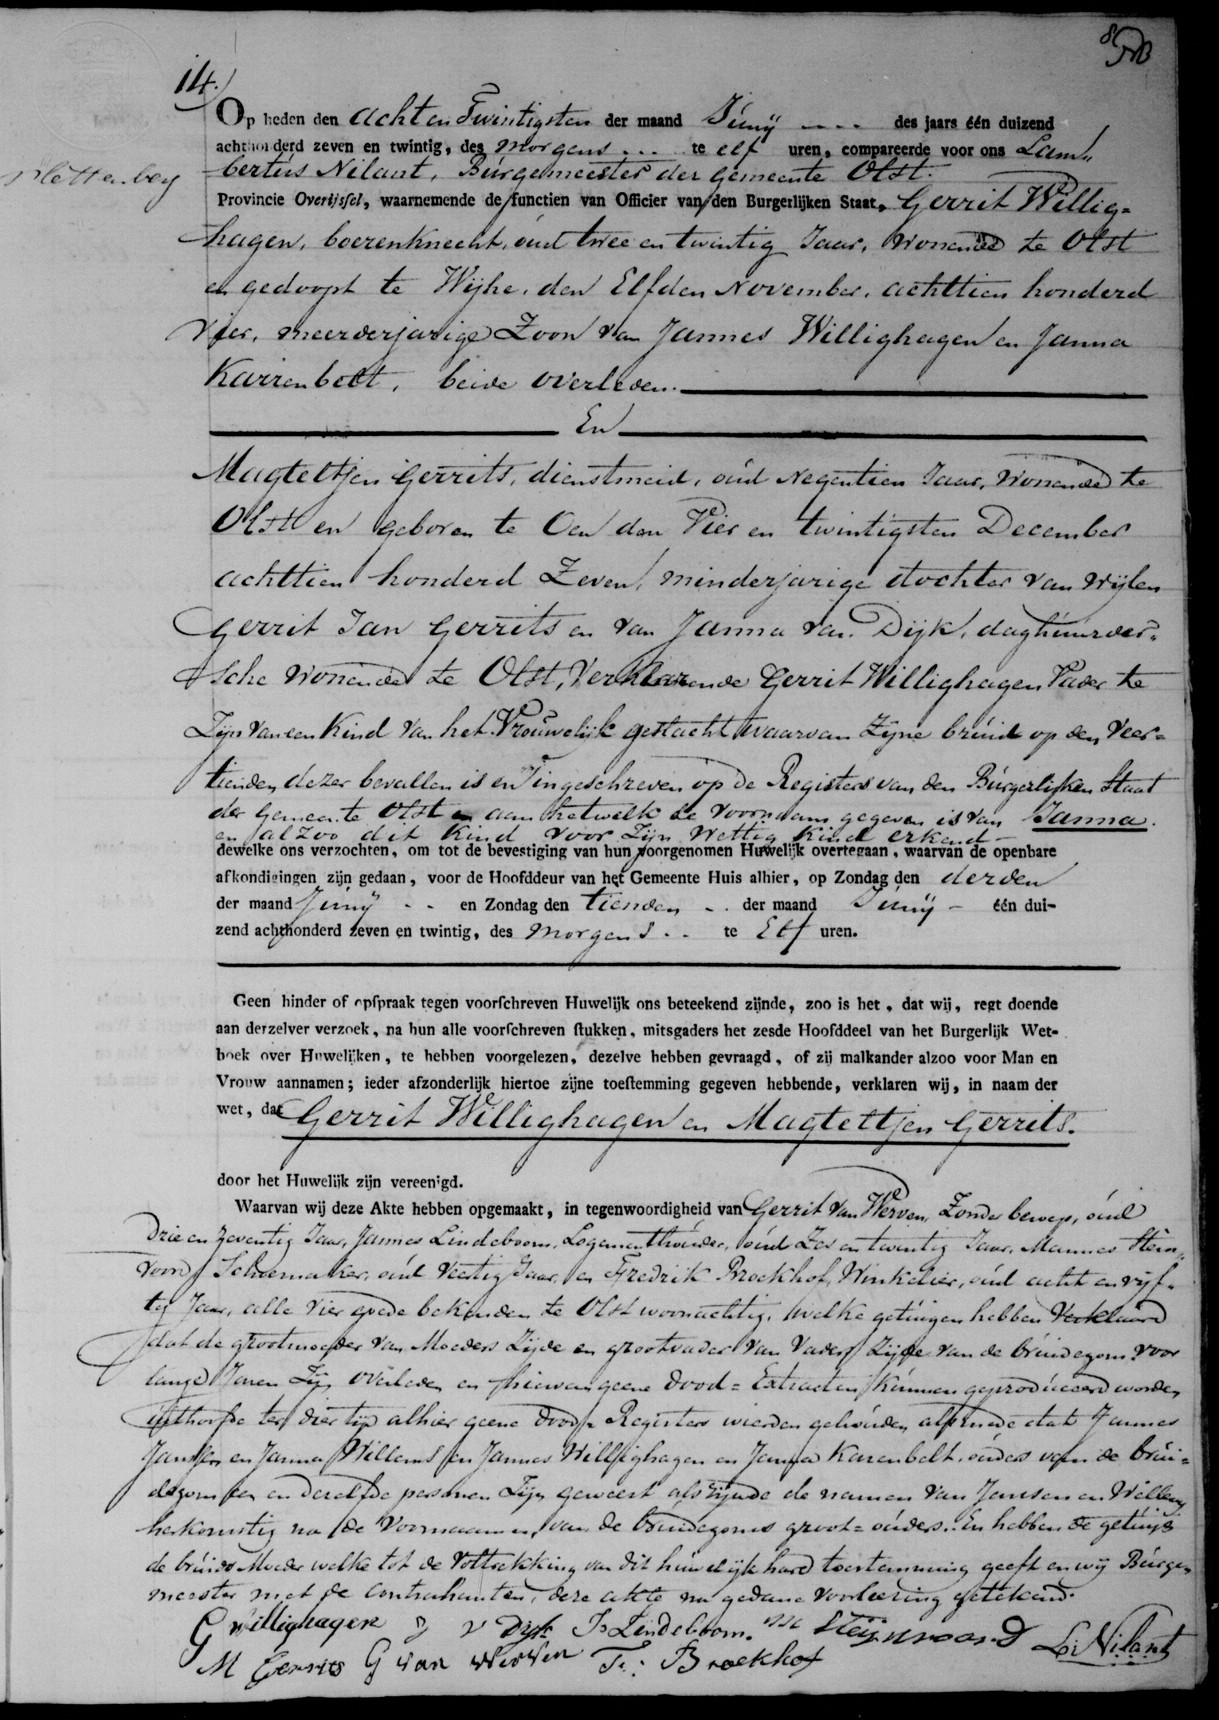 14.)
Op heden den achtenTwintigsten der maand Junij --- des jaars één duizend
achthonderd zeven en twintig, des morgens ... te elf uren, compareerde voor ons Lam„
bertus Nilant, Burgemeester der gemeente Olst.
Provincie Overijsſel, waarnemende de functien van Officier van den Burgerlijken Staat, Gerrit Willig=
hagen, boerenknecht, oud twee en twintig Jaar, wonende te Olst
en gedoopt te Wijhe, den Elfden November, achttien honderd
vier, meerderjarige Zoon van Jannes Willighagen en Janna
Karrenbelt, beide overleden.
En
Magteltjen Gerrits, dienstmeid, oud Negentien Jaar, wonende te
Olst en geboren te Oen den Vier en twintigsten December
achttien honderd Zeven, minderjarige dochter van wijlen
Gerrit Jan Gerrits en van Janna van Dijk, daghuurder=
sche wonende te Olst, Verklarende Gerrit Willighagen Vader te
Zijn van een Kind van het Vrouwelijk geslacht waarvan Zijne bruid op den veer=
tienden dezer bevallen is en ingeschreven op de Registers van den Burgerlijken Staat
der Gemeente Olst en aan hetwelk de voornaam gegeven is van Janna.
en alzoo dit Kind voor Zijn Wettig Kind erkend
dewelke ons verzochten, om tot de bevestiging van hun voorgenomen Huwelijk overtegaan, waarvan de openbare
afkondigingen zijn gedaan, voor de Hoofddeur van het Gemeente Huis alhier, op Zondag den derden
der maand Junij -- en Zondag den tienden -- der maand Junij - één dui-
zend achthonderd zeven en twintig, des morgens .. te Elf uren.
Geen hinder of opſpraak tegen voorſchreven Huwelijk ons beteekend zijnde, zoo is het, dat wij, regt doende
aan derzelver verzoek, na hun alle voorſchreven ſtukken, mitsgaders het zesde Hoofddeel van het Burgerlijk Wet-
boek over Huwelijken, te hebben voorgelezen, dezelve hebben gevraagd, of zij malkander alzoo voor Man en
Vrouw aannamen; ieder afzonderlijk hiertoe zijne toeſtemming gegeven hebbende, verklaren wij, in naam der
wet, dat Gerrit Willighagen en Magteltjen Gerrits.
door het Huwelijk zijn vereenigd.
Waarvan wij deze Akte hebben opgemaakt, in tegenwoordigheid van Gerrit van Werven, Zonder beroep, oud
Drie en Zeventig Jaar, Jannes Lindeboom, Logementhouder, oud Zes en twintig Jaar, Mannes Stein„
voord, Schoemaker, oud Veertig Jaar, en Fredrik Broekhof, Winkelier, oud acht en vijf=
tig Jaar, alle vier goede bekenden te Olst woonachtig, welke getuigen hebben Verklaard
dat de grootmoeder van Moeders Zijde en grootvader van Vaders Zijde van de bruidegom voor
lange Jaren Zijn overleden en hiervan geene Dood=Extracten kunnen geproduceerd worden
uithoofde ter dier tijd alhier geene Dood=Registers wierden gehouden, alsmede dat Jannes
Jansen en Janna Willems en Jannes Willighagen en Janna Karrenbelt, ouders van de brui=
degom een en dezelfde personen Zijn geweest als zijnde de namen van Jansen en Willems
herkomstig na de Voornaamen van de bruidegoms groot=ouders. En hebben de getuigen
de bruids Moeder welke tot de voltrekking van dit huwelijk hare toestemming geeft en wij Burge„
meester met de contrahanten, deze akte na gedane voorlezing getekend.
G Willighagen J v Dijk Js Lindeboom. M Steijnvoord Ls Nilant
M Gerrits G van Werven Fr: Broekhof